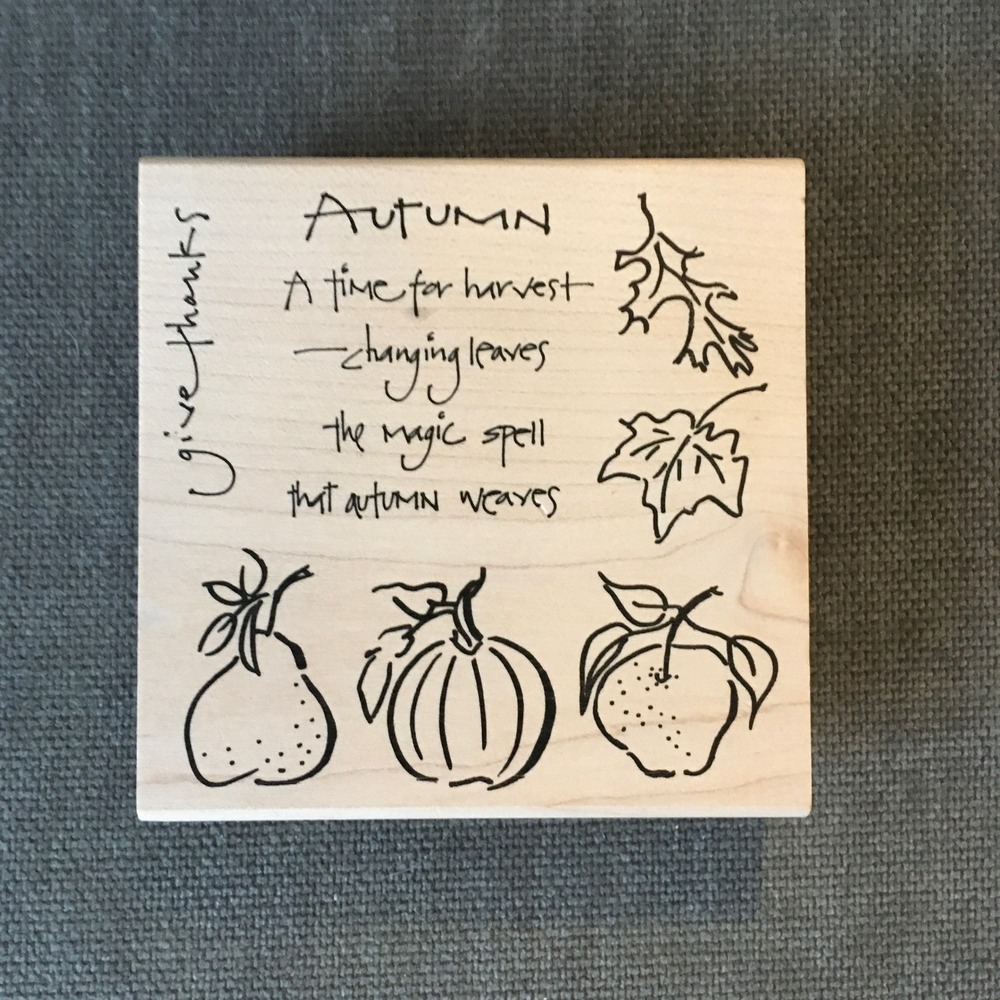 give thanks
AUTUMN
A time for harvest
—changing leaves
the magic spell
that autumn weaves